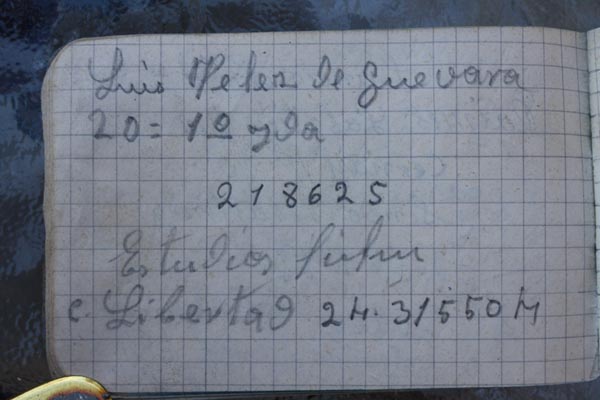 Luis Velez de Guevara
20 = 1º yda
218625
Estudios
c. Libertad 24. 315504